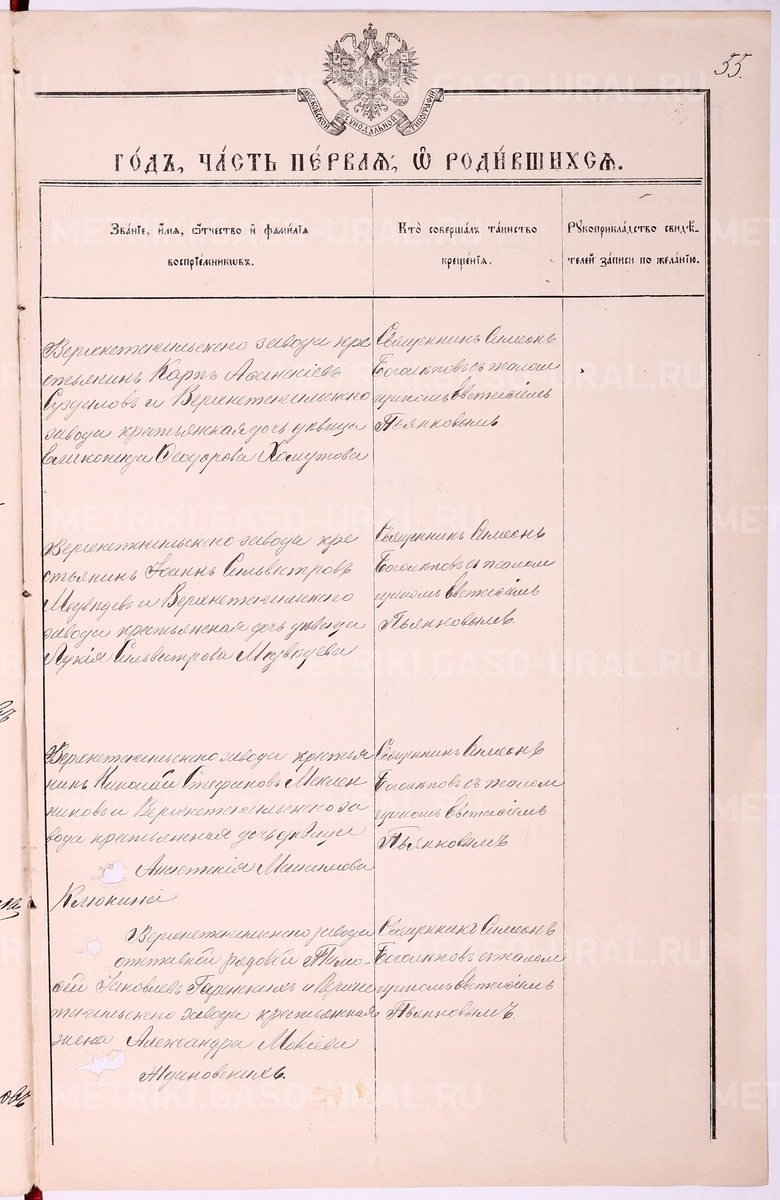 55.
МОСКОВСКОЙ СѴНОДАЛЬНОЙ ТИПОГРАФІИ
ГО́ДЪ, ЧА́СТЬ ПЕ́РВАЯ, Ѡ҆ РОДИ́ВШИХСЯ.
Зва́нїе, и҆́мя, ѻ҆́тчество и҆ фами́лїя
воспрїе́мникѡвъ.
Кто̀ соверша́лъ та́инство
креще́нїѧ.
Рꙋкоприкла́дство свидѣ́-
телей за́писи по жела́нїю.
Верхнетагильскаго завода кре
стьянинъ Карпъ Аѳанасіевъ
Суздаловъ и Верхнетагильскаго
завода крестьянская дочь девица
Еликонида Ѳеодорова Хомутова
Священникъ Симеонъ
Боголѣповъ съ псалом
щикомъ Евстафіемъ
Пьянковымъ
Верхнетагильскаго завода кре
стьянинъ Іоаннъ Сильвестровъ
Медвѣдевъ и Верхнетагильскаго
завода крестьянская дочь девица
Лукія Сильвестрова Медвѣдева
Священникъ Симеонъ
Боголѣповъ съ псалом
щикомъ Евстафіемъ
Пьянковымъ
Верхнетагильскаго завода крестья
нинъ Николай Стефановъ Маслен
никовъ и Верхнетагильскаго за
вода крестьянская дочь девица
Анастасія Максимова
Клюкина
Священникъ Симеонъ
Боголѣповъ съ псалом
щикомъ Евстафіемъ
Пьянковымъ
Верхнетагильскаго завода
отставной рядовой Тимо-
ѳей Яковлевъ и Верхне
тагильскаго завода крестьянская
жена Александра Мокіева
Священникъ Симеонъ
Боголѣповъ съ псалом
щикомъ Евстафіемъ
Пьянковымъ.
METRIKI.GASO-URAL.RU